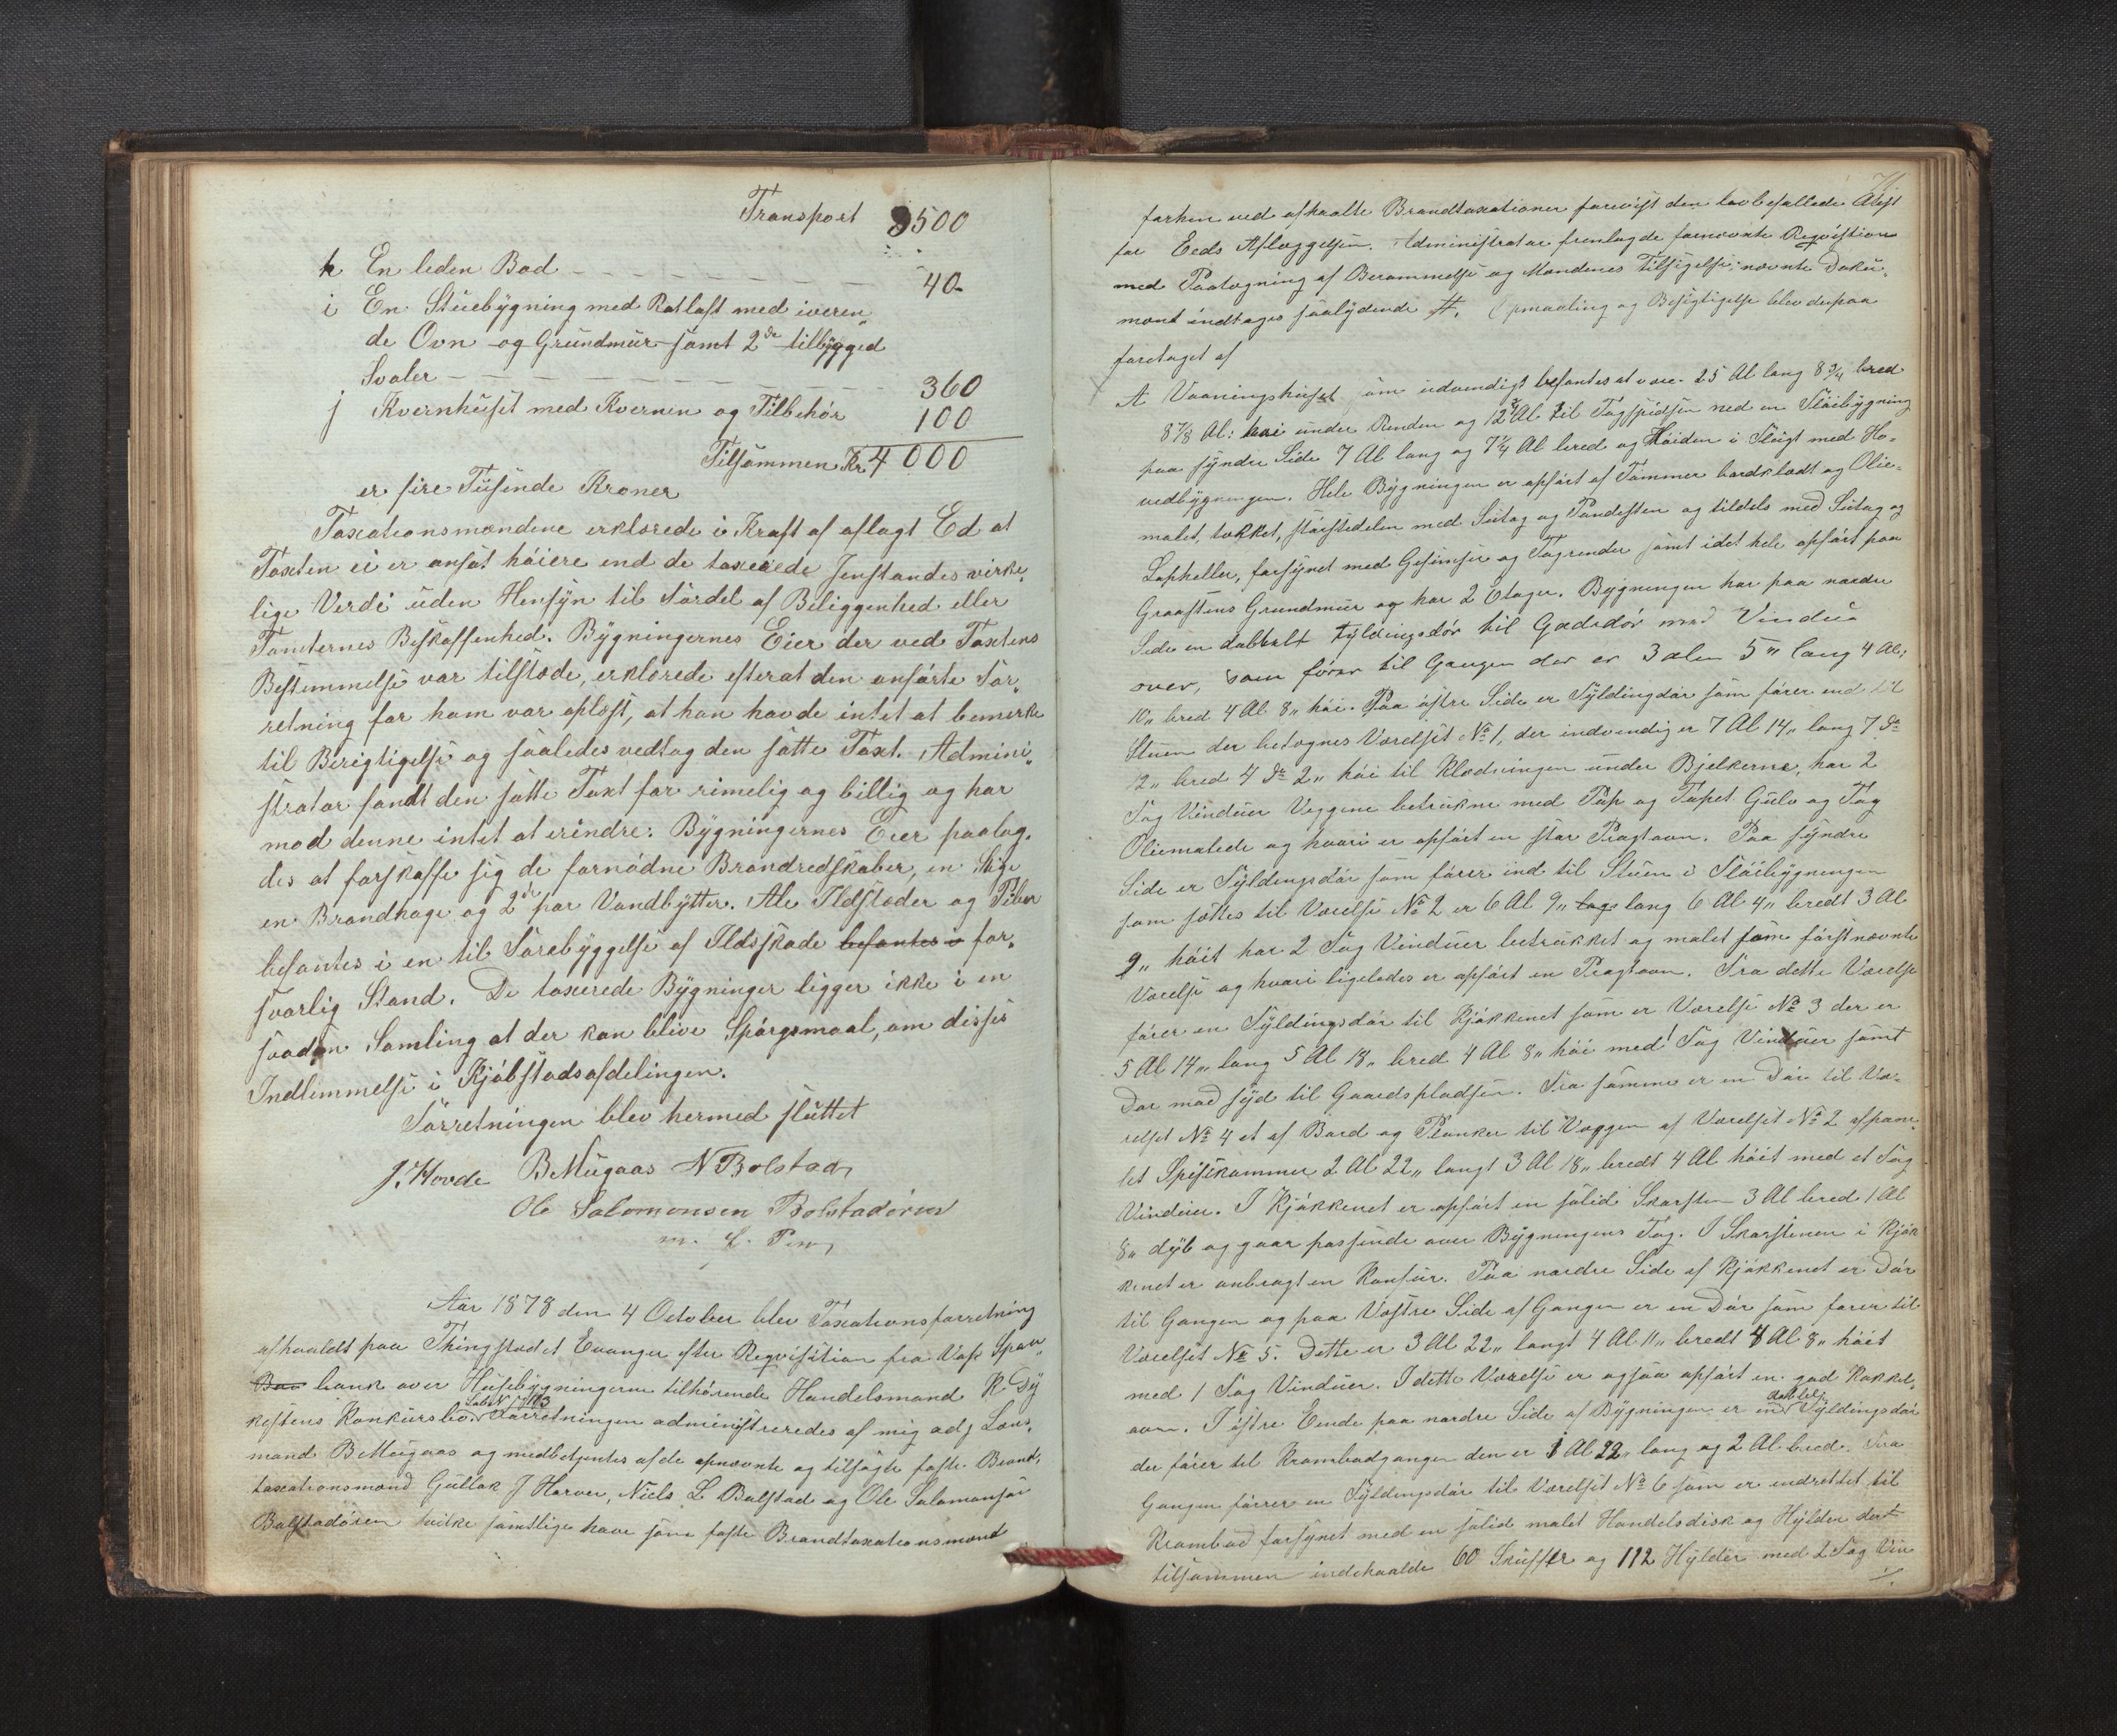 Transport 3500
h En liden Bod 40-
i En Stuebygning med Rotlaft med iveren„
de Ovn og Grundmur samt 2de tilbygged
Svaler 360
j Kvernhuset med Kvernen og Tilbehör 100
Tilsammen Kr 4000
er fire Tusinde Kroner
Taxationsmændene erklærede i Kraft af aflagt Ed at
Taxten ei er ansat höiere end de taxerede Jenstandes virke„
lige Verdi uden Hensyn til Fördel af Beliggenhed eller
Tomternes Beskaffenhed. Bygningernes Eier der ved Taxtens
Bestemmelse var tilstæde, erklærede efterat den anförte For„
retning for ham var oplæst, at han havde intet at bemerke
til Berigtigelse og saaledes vedtog den satte Taxt. Admini„
strator fandt den satte Taxt for rimelig og billig og har
mod denne intet at erindre. Bygningernes Eier paalag„
des at forskaffe sig de fornödne Brandredskaber, en Stige
en Brandhage og 2de par Vandbytter. Ale Ildstæder og Piber
befantes i en til Forebyggelse af Ildsskade befantes i for„
svarlig Stand. De taxerede Bygninger ligger ikke i en
saadan Samling at der kan blive Spörgsmaal, om disses
Indlemmelse i Kjöbstadsafdelingen.
Forretningen blev hermed sluttet
J. Hovde B Mugaas N Bolstad
Ole Salomonsen Bolstadören
m. f. Pen
Aar 1878 den 4 October blev Taxationsforretning
afholdt paa Thingstedet Evanger efter Reqvisition fra Vos Spare
bank over Husebygningerne tilhörende Handelsmand K Dy
kestens Konkursbo. Forretningen administreredes af mig adj Lens„
mand B Mugaas og medbetjentes af de opnævnte og tilsagte faste Brand„
taxationsmænd Gullak J Horvei, Niels L Bolstad og Ole Salamonsen
Bolstadören hvilke samtlige have som faste Brandtaxationsmænd
71
forhen ved afholdte Brandtaxationer forevist den lovbefallede Atest
for Eeds Aflæggelsen. Administrator fremlagde fornævnte Reqvisition
med Paategning af Berammelse og Mændenes Tilsigelse, nævnte Doku„
ment indtages saalydende #. Opmaaling og Besigtigelse blev derpaa
foretaget af
A Vaaningshuset som udvendigt befantes at være 25 Al lang 8 3/4 bred
8 7/8 Al: höi under Renden og 12 3/4 Al til Tagspidsen ned en Flöibygning
paa syndre Side 7 Al lang og 7 1/4 Al bred og Höiden i Fleigt med Ho„
vedbygningen. Hele Bygningen er opfört af Tömmer bordklædt og Olie„
malet, tækket, störstedelen med Sutag og Pandesten og tildels med Sutag og
Lapheller, forsynet med Gesimser og Tagrender samt i det hele opfört paa
Graastens Grundmur og har 2 Etager. Bygningen har paa nordre
Side en dobbelt Fyldingsdör til Gadedör med Vindue
over, som förer til Gangen der er 3 alen 5„ lang 4 Al:
10„ bred 4 Al 8„ höi. Paa östre Side er Fyldingdör som förer ind til
Stuen der betegnes Værelset No 1, der indvendig er 7 Al 14„ lang 7 do
12„ bred 4 do 2„ höi til Klædningen under Bjelkerne, har 2
Fag Vinduer Veggene betrukne med Pap og Tapet Gulv og Tag
Oliemalede og hvori er opfört en stor Pragtovn. Paa syndre
Side er Fyldingsdör som förer ind til Stuen i Flöibygningen
som sættes til Værelse No 2 er 6 Al 9„ lang 6 Al 4„ bredt 3 Al
9„ höit har 2 Fag Vinduer betrukket og malet som förstnævnte
Værelse og hvori ligeledes er opfört en Pragtovn. Fra dette Værelse
förer en Fyldingsdör til Kjökkenet som er Værelse No 3 der er
5 Al 14„ lang 5 Al 18„ bred 4 Al 8„ höi med 1 Fag Vinduer samt
Dör mod syd til Gaardspladsen. Fra samme er en Dör til Væ„
relset No 4 et af Bord og Planker til Væggen af Værelset No 2 afpane„
let Spiskammer 2 Al 22„ langt 3 Al 18„ bredt 4 Al höit med et Fag
Vinduer. I Kjökkenet er opfört en solid Skorsten 3 Al bred 1 Al
8„ dyb og gaar passende over Bygningens Tag. I Skorstenen i Kjök
kenet er anbragt en Komfur. Paa nordre Side af Kjökkenet er Dör
til Gangen og paa Vestre Side af Gangen er en Dör som förer til
Værelset No 5. Dette er 3 Al 22„ langt 4 Al 11„ bredt 4 Al 8„ höit
med 1 Fag Vinduer. I dette Værelse er ogsaa opfört en god Kakkel„
ovn. I östre Eende paa nordre Side af Bygningen er en dobbelt Fyldingsdör
der förer til Krambodgangen den er 1 Al 22„ lang og 2 Al bred. Fra
Gangen förer en Fyldingsdör til Værelset No 6 som er indrettet til
Krambod forsynet med en solid malet Handelsdisk og Hylder det
tilsammen indeholde 60 Skuffer og 112 Hylder med 2 Fag Vin